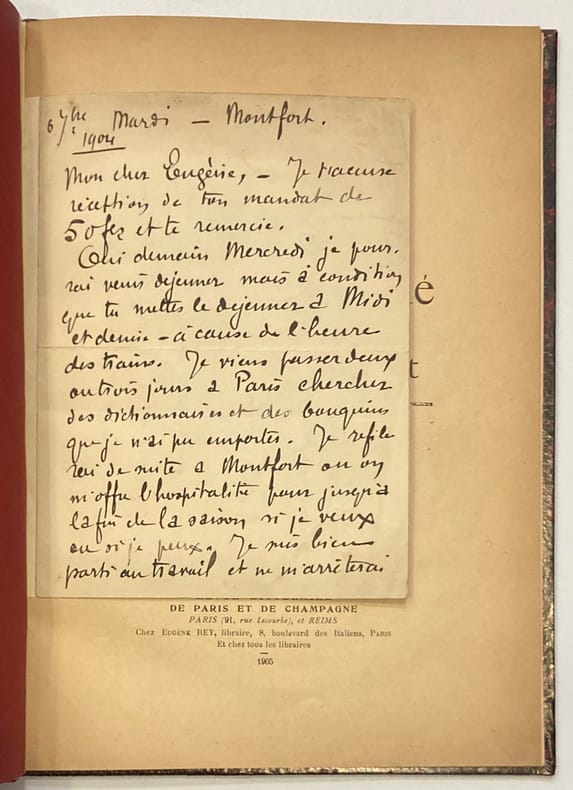 6 7bre Mardi — Montfort.
1904
Mon cher Eugène, — Je t'accuse
réception de ton mandat de
50 frs et te remercie.
Oui demain Mercredi je pour-
rai venir déjeuner mais à condition
que tu mettes le déjeuner à Midi
et demie — à cause de l'heure
des trains. Je viens passer deux
ou trois jours à Paris chercher
des dictionnaires et des bouquins
que je n'ai pu emporter. Je refile
rai de suite à Montfort où on
m'offre l'hospitalité pour jusqu'à
la fin de la saison si je veux
ou si je peux. Je suis bien
parti au travail et ne m'arrêterai
é
t
DE PARIS ET DE CHAMPAGNE
PARIS (91, rue Lecourbe), et REIMS
Chez EUGÈNE REY, libraire, 8, boulevard des Italiens, PARIS
Et chez tous les libraires
1905